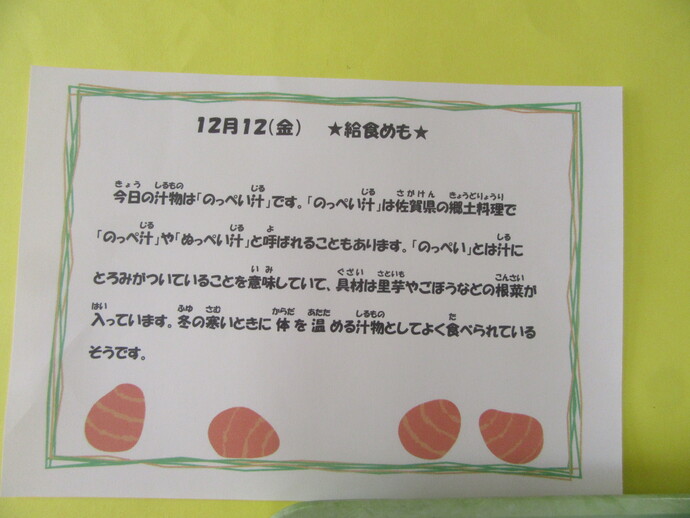 12月12(金) ★給食めも★
今日の汁物は「のっぺい汁」です。「のっぺい汁」は佐賀県の郷土料理で
「のっぺ汁」や「ぬっぺい汁」と呼ばれることもあります。「のっぺい」とは汁に
とろみがついていることを意味していて、具材は里芋やごぼうなどの根菜が
入っています。冬の寒いときに体を温める汁物としてよく食べられている
そうです。